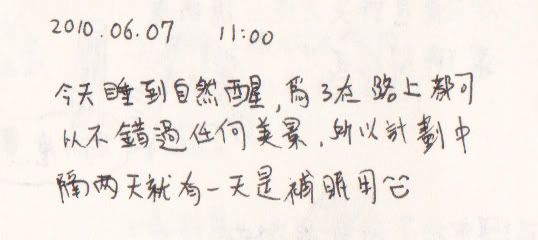 2010.06.07 11:00
今天睡到自然醒,為了在路上都可
以不錯過任何美景,所以計劃中
隔两天就有一天是補眠用